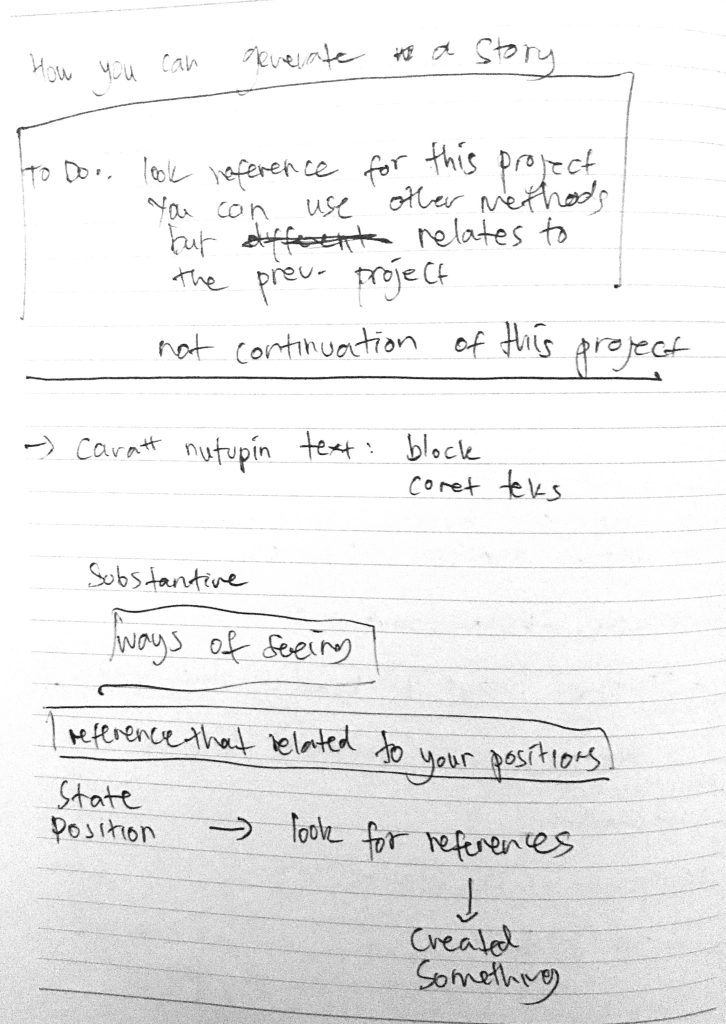 How you can generate a Story
To Do: look reference for this project
You can use other methods
but different relates to
the prev. project
not continuation of this project
→ cara" nutupin text: block
coret teks
Substantive
ways of seeing
reference that related to your positions
State
Position → look for references
↓
Created
Something